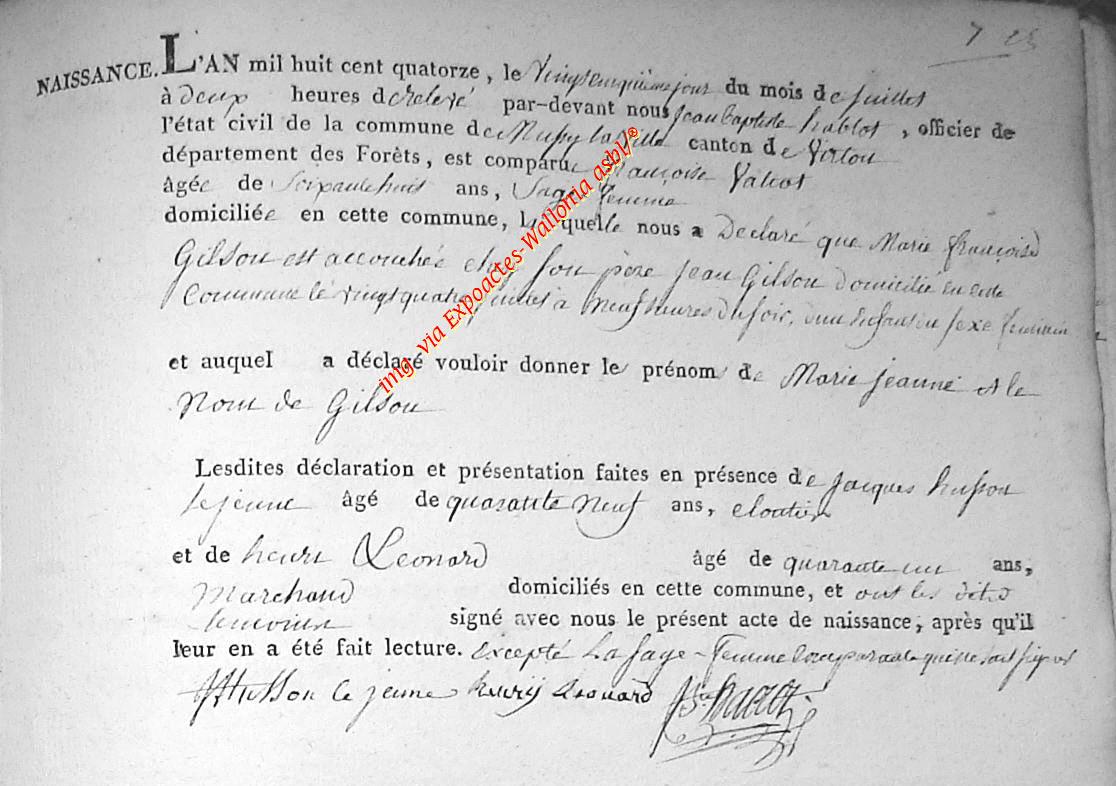 7 25
NAISSANCE. L'AN mil huit cent quatorze, le vingtcinquieme jour du mois de juillet
à deux heures de relevé par-devant nous jean Baptiste hablot, officier de
l'état civil de la commune de Mussy la ville canton de Virton
département des Forêts, est comparue françoise
âgée de Soixante huit ans, Sage femme
domiciliée en cette commune, la quelle nous a Declaré que Marie françoise
Gilson est accouchée chez son père jean Gilson domicilié en cette
Commune le vingt quatre juillet à neuf heures du soir, d'un enfant du sexe feminin
et auquel a déclaré vouloir donner les prénoms de Marie jeanne et le
Nom de Gilson
Lesdites déclaration et présentation faites en présence de jacques husson
lejeune âgé de quarante neuf ans, cloutier
et de henri Leonard âgé de quarante un ans,
Marchand domiciliés en cette commune, et ont les dits
temoins signé avec nous le présent acte de naissance, après qu'il
leur en a été fait lecture. excepté La sage-femme comparante qui ne sait signer
husson le jeune henrij Leonard
img. via Expoactes-Wallonia asbl/®